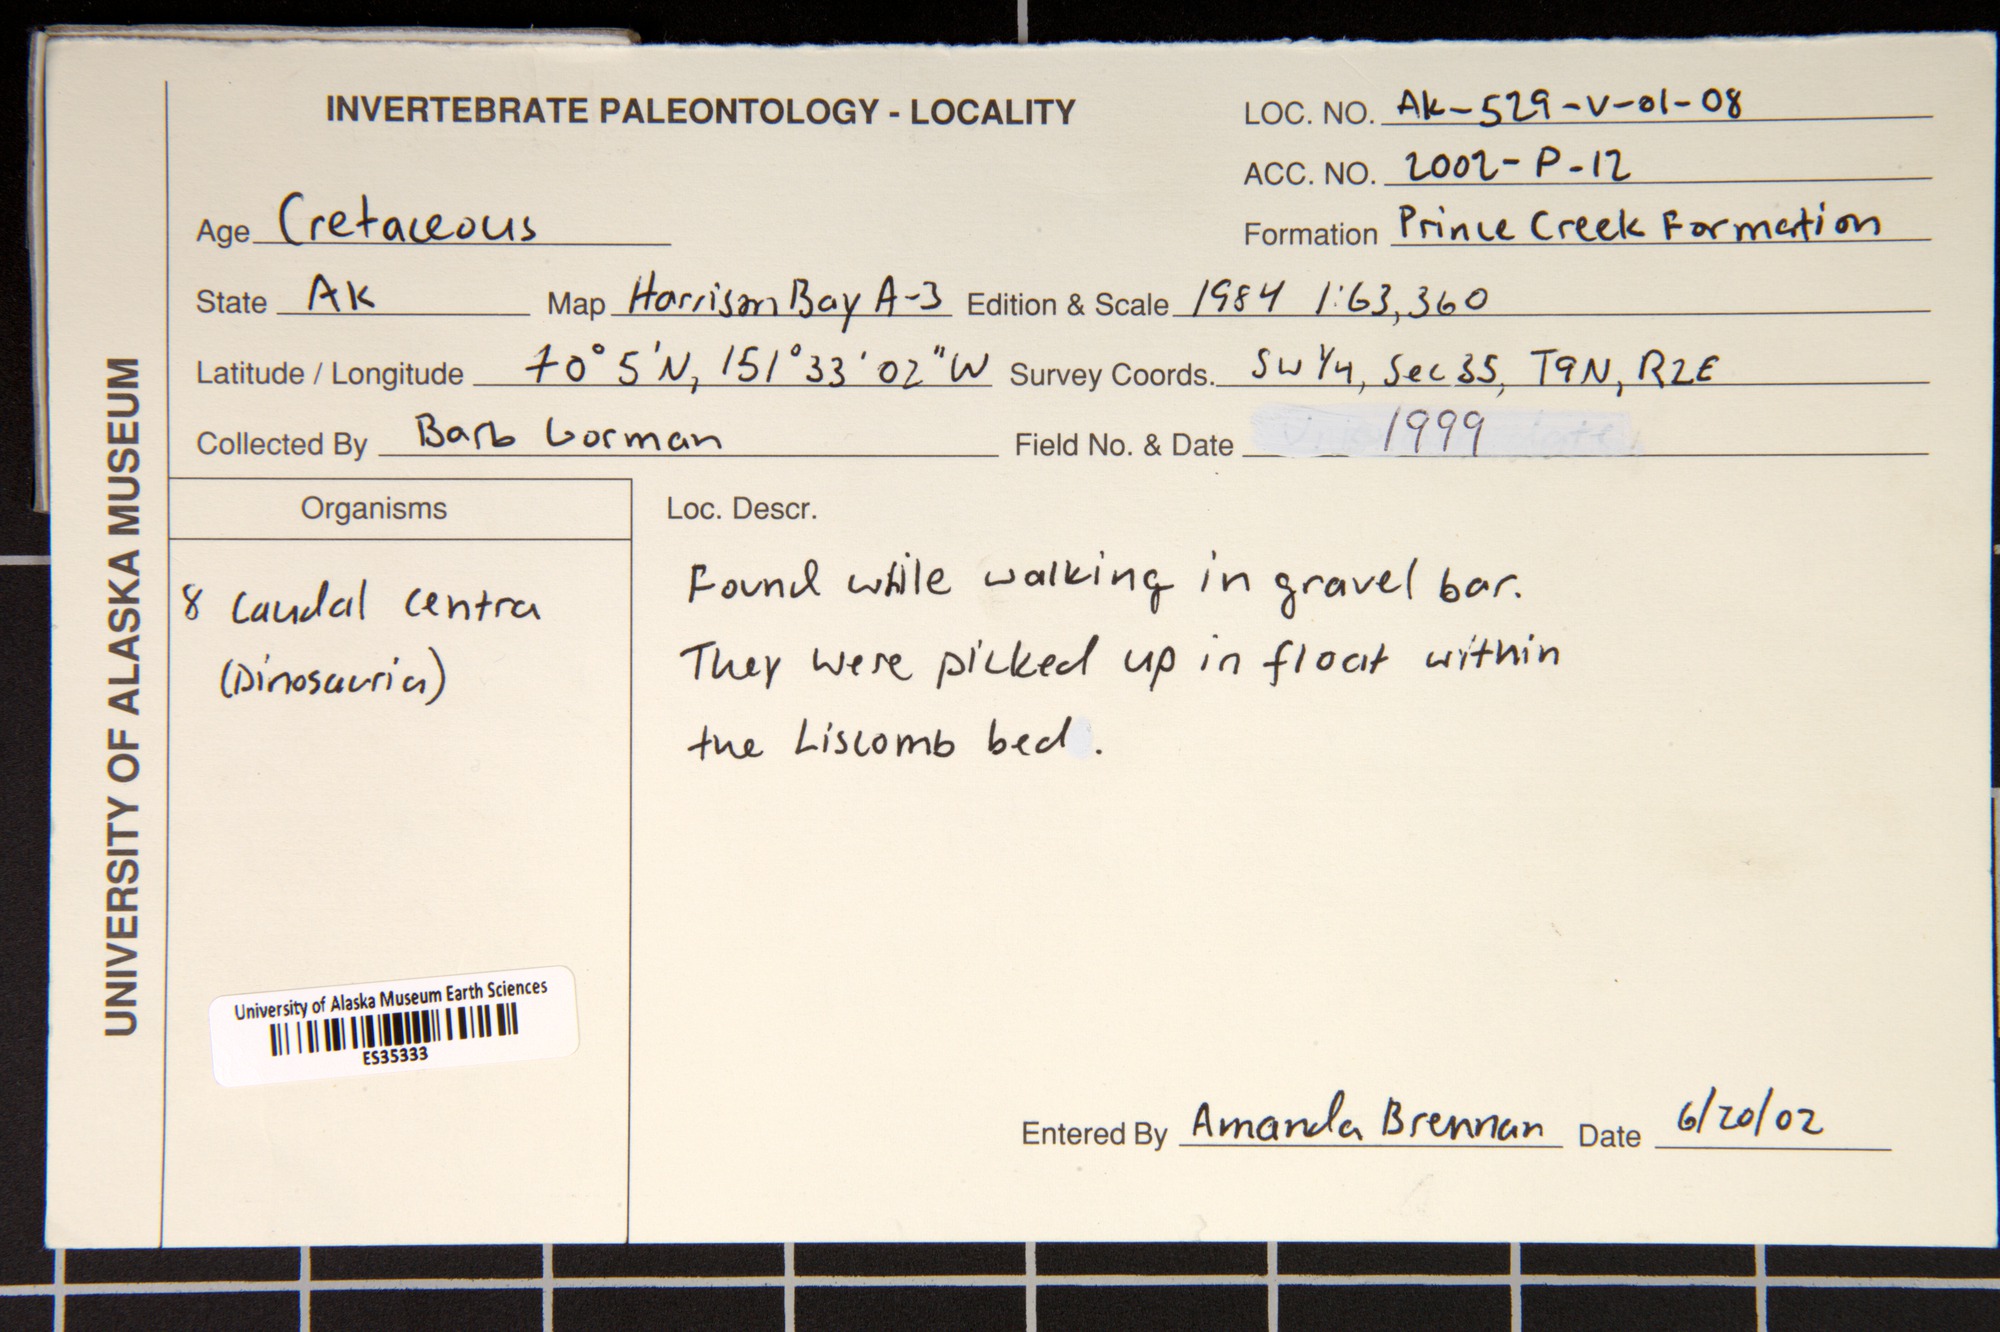 INVERTEBRATE PALEONTOLOGY - LOCALITY
LOC. NO. AK-529-V-01-08
ACC. NO. 2002-P-12
Age Cretaceous
Formation Prince Creek Formation
State AK Map Harrison Bay A-3 Edition & Scale 1984 1:63,360
Latitude / Longitude 70° 5'N, 151°33'02"W Survey Coords. SW 1/4, Sec 35, T9N, R2E
Collected By Barb Gorman Field No. & Date 1999
Organisms
8 caudal centra
(Dinosauria)
Loc. Descr.
Found while walking in gravel bar.
They were picked up in float within
the Liscomb bed.
University of Alaska Museum Earth Sciences
ES35333
Entered By Amanda Brennan Date 6/20/02
UNIVERSITY OF ALASKA MUSEUM